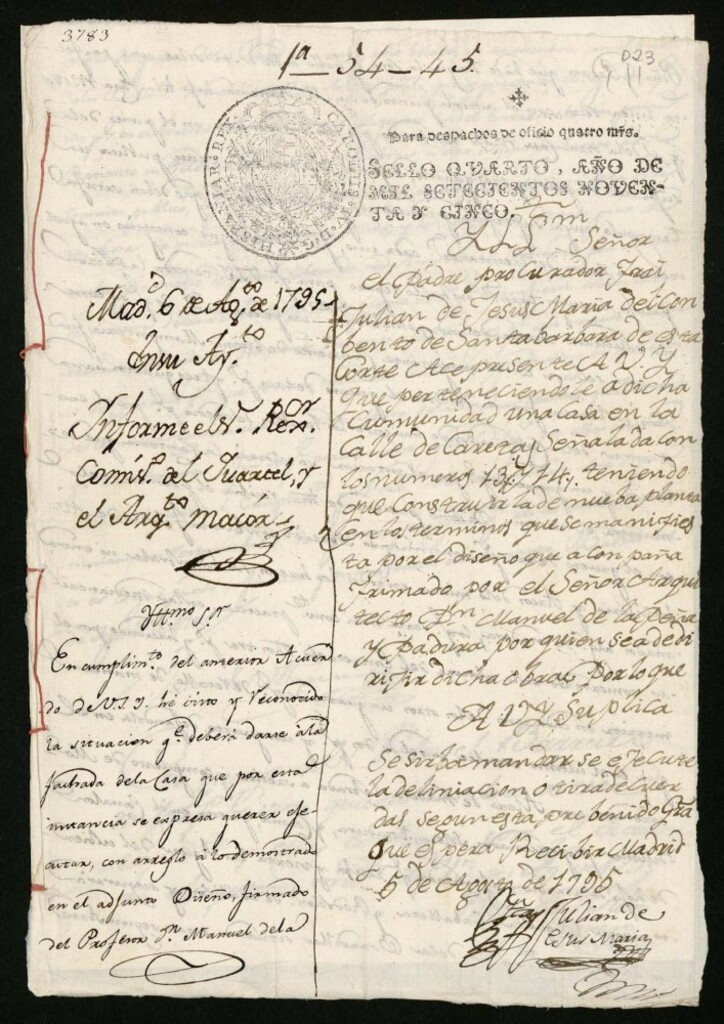 3783
1ª_54_45.
D23
HISPANIAR. REX
CAROLUS IV D.G.
Para despachos de oficio quatro mrs.
SELLO QVARTO, AÑO DE
MIL SETECIENTOS NOVEN-
TA Y CINCO.
Señor
el Padre procurador Frai
Julian de Jesus Maria del Con
bento de Santa barbara de esta
Corte Ace presente A V. Y.
que perteneciendole a dicha
Comunidad una casa en la
Calle de Careza Señalada con
los numeros 13, y 14, teniendo
que Construirla de nueba planta
en los terminos que se manifies
ta por el diseño que a conpaña
Frimado por el Señor Arqui
tecto Dn Manuel de la Peña
y Padura por quien se a de di
rijir dicha obra, Por lo que
A V Y Suplica
Se sirba mandar se ejecute
la deliniacion o tira de cuer
das segun esta pre benido Gra
que espera Recibir Madrid
5 de Agosto de 1795
Fray Julian de
Jesus Maria
Mad.d 6 de Ag.to de 1795
En su Ay.to
Informe el S.r Rex.or
Comis.o del Quartel, y
el Arq.to maior
Yttmo S.r
En cumplim.to del anterior Acuer
do de V.S.Y. he visto y reconocido
la situacion q.e deberá darse á la
fachada de la Casa que por esta
instancia se expresa querer eje-
cutar, con arreglo á lo demostrado
en el adjunto Diseño, firmado
del Profesor D.n Manuel de la